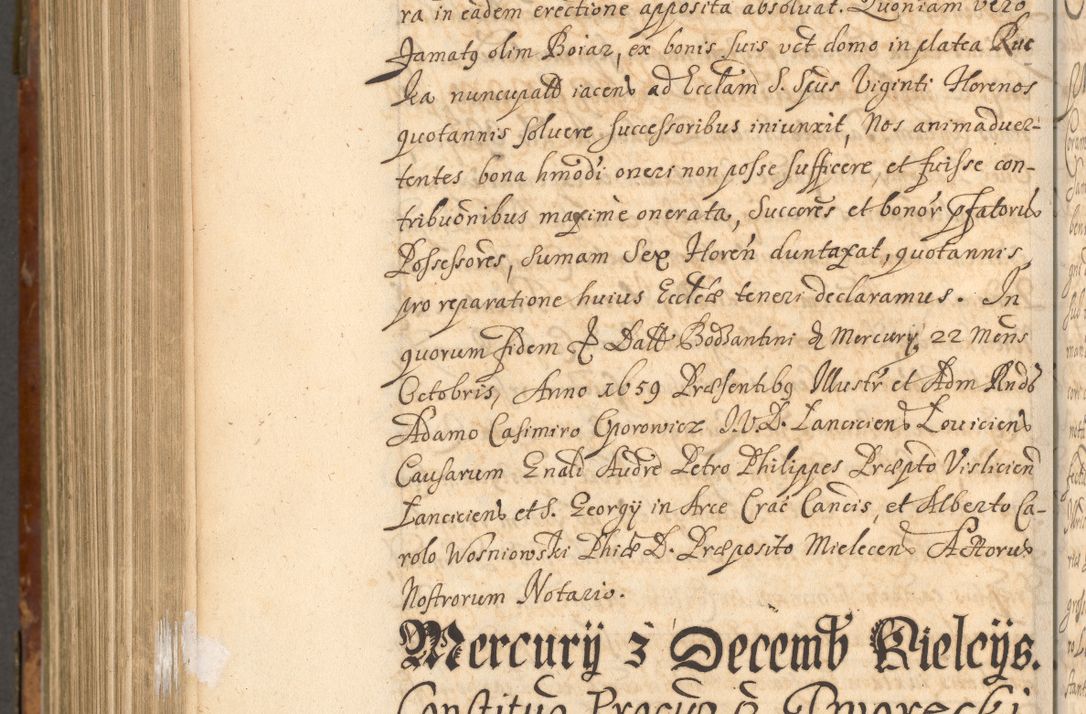 ra in eadem erectione apposita absoluat. Quoniam vero
Jamatꝰ olim Boiar, ex bonis suis vct domo in platea Ruc
ka nuncupatd iacens ad Ecctam S. Spus Viginti florenos
quotannis soluere successoribus iniunxit, Nos animaduer-
tentes bona hmōdi oneri non posse sufficere, et fuisse con-
tribuōnibus maxime onerata, Succōres et bonor pfatorus
Possessores, sumam Sex floreñ duntaxat, quotannis,
pro reparatione huius Eccleæ teneri declaramus. In
quorum fidem Datt Bodzantini d Mercurÿ 22 Mens
Octobris, Anno 1659 Præsentibꝰ Illustr et Adm Rnds
Adamo Casimiro Oporowicz J.V.D. Lanciciens Louiciens
Causarum Gnali Audre Petro Philippes Præpto Visliciens
Lanciciens et S. Georgÿ in Arce Crac Cancis, et Alberto Ca-
rolo Wosniowski Phiæ D. Præposito Mielecens Acttorus
Nostrorum Notario.
Mercurÿ 3 Decemb Kielcÿs.
Constituo Procuo D Dworecki